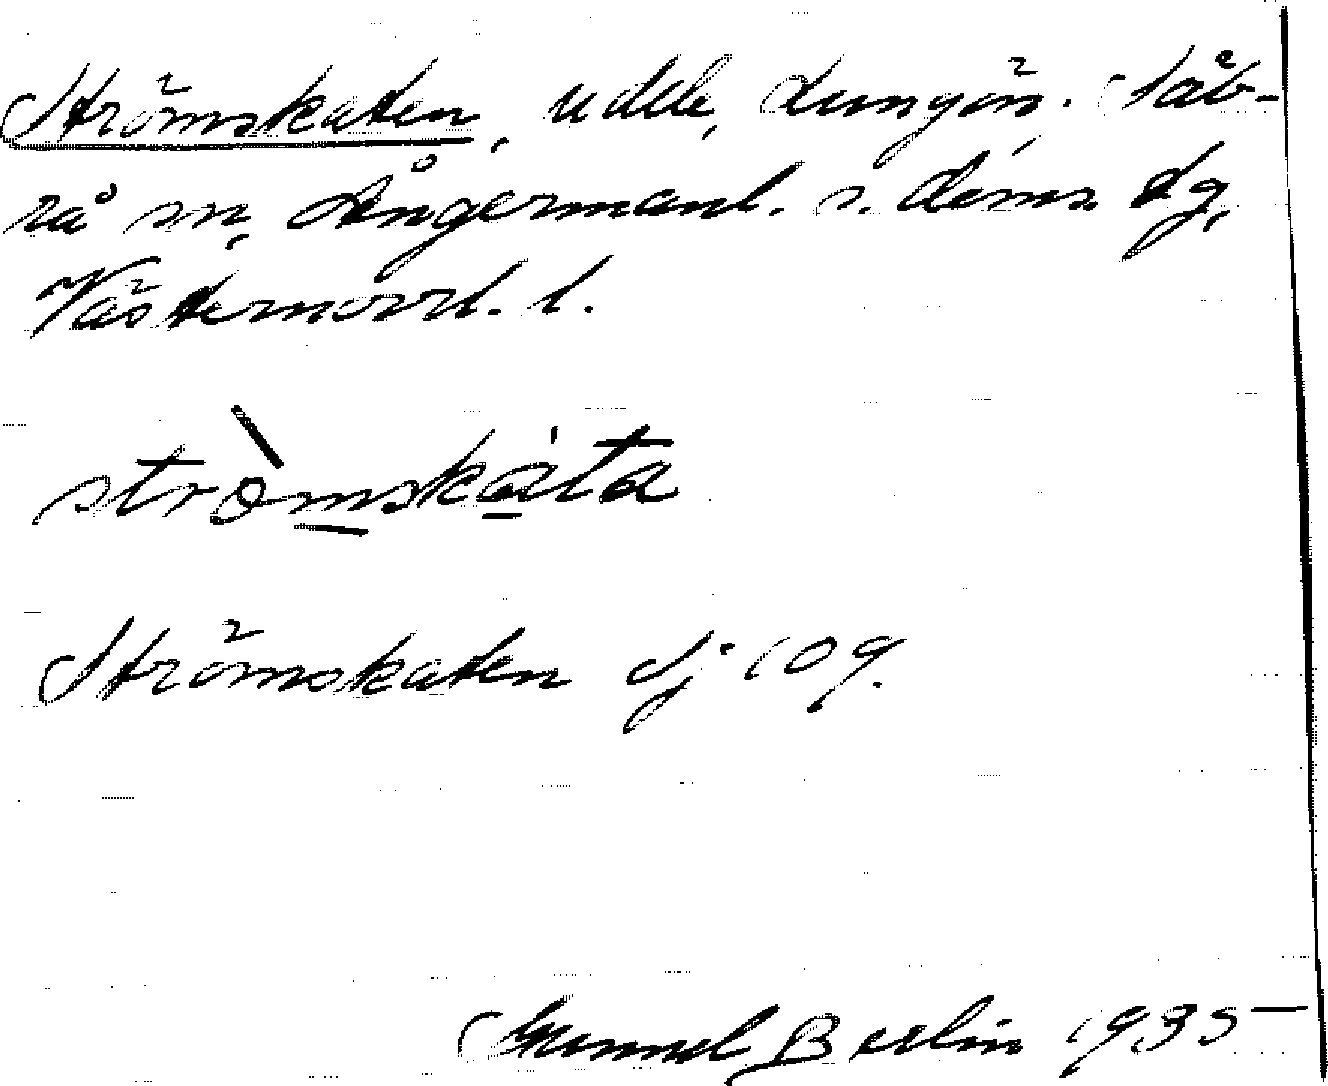 Strömskaten, udde, Lungön. Säb-
rå sn, Ångermanl. s. doms dg,
Västernorrl. l.
stròmskáta
Strömskaten Sj 109.
Gunnel Berlin 1935